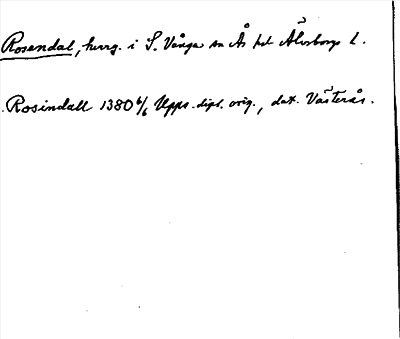 Rosendal, herrg. i S. Vånga sn Ås hd Älvsborgs l.
Rosindall 1380 6/6 Upps. dipl. orig., dat. Västerås.